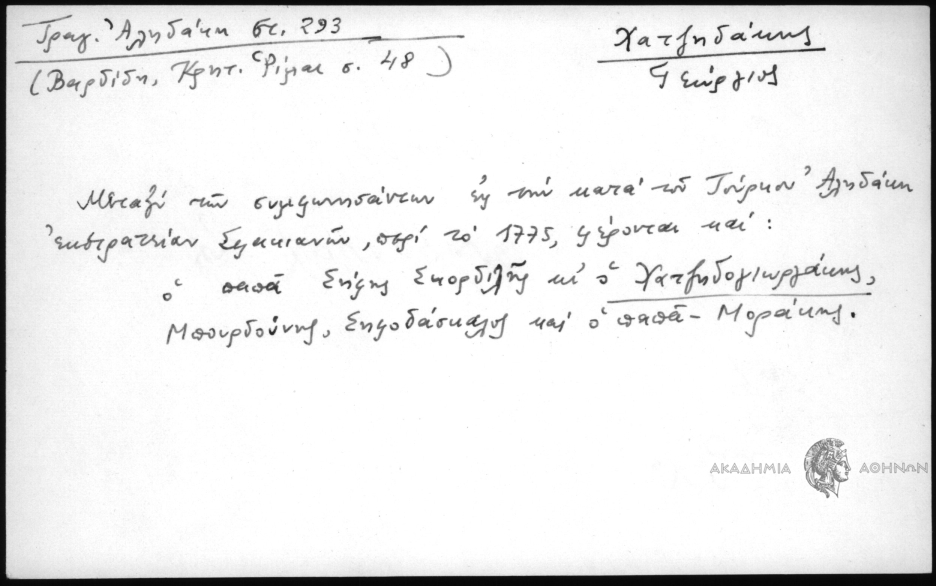 Τραγ. Ἀληδάκη στ. 293
(Βαρδίδη, Κρητ. Ρίμαι σ. 48)
Χατζηδάκης
Γεώργιος
Μεταξύ τῶν συμφωνησάντων εἰς τήν κατά τοῦ Τούρκου Ἀληδάκη
ἐκστρατείαν Σφακιανῶν, περί τό 1775, φέρονται καί:
ὁ παπᾶ Σήφης Σκορδίλης κι ὁ Χατζηδογιωργάκης,
Μπουρδούνης, Σηφοδάσκαλος καί ὁ παπᾶ-Μοράκης.
ΑΚΑΔΗΜΙΑ ΑΘΗΝΩΝ